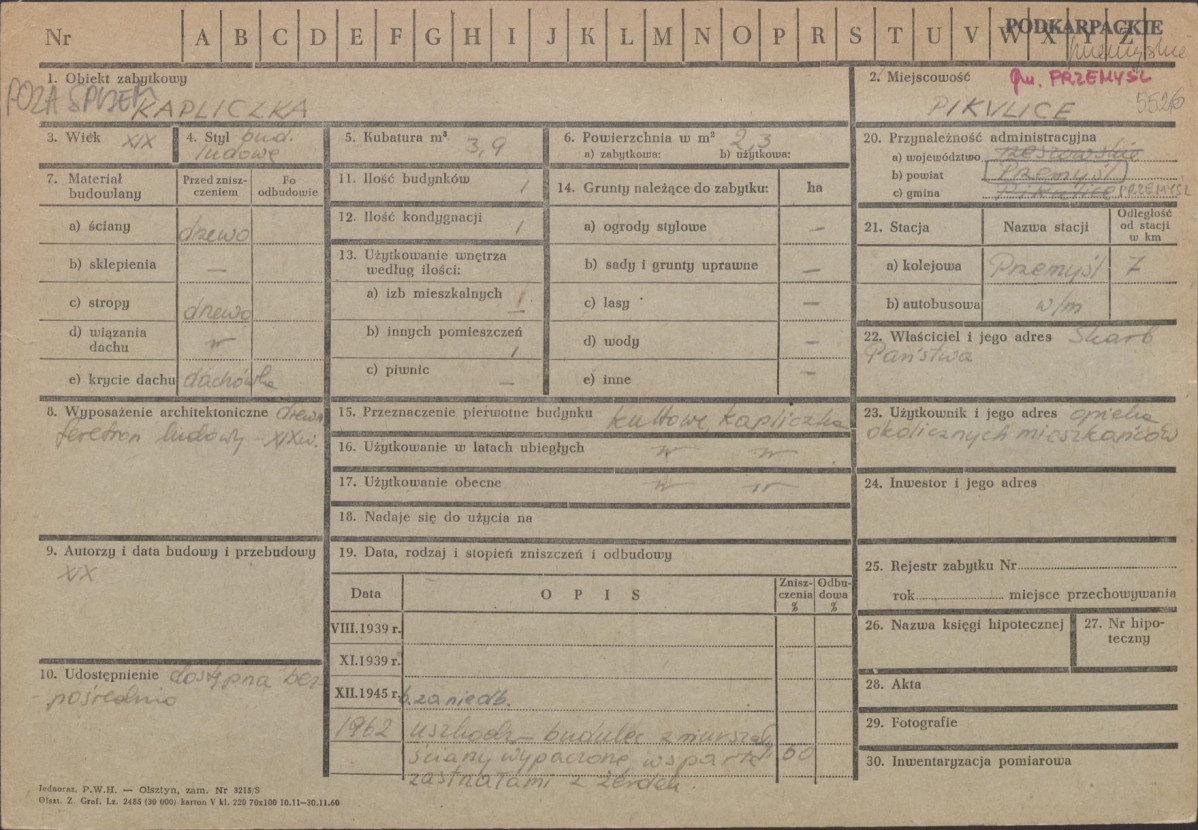 Nr A B C D E F G H I J K L M N O P R S T U V W X Y Z
PODKARPACKIE
przemyskie
1. Obiekt zabytkowy
POZA SPISEM
KAPLICZKA
2. Miejscowość
gm. PRZEMYŚL
PIKULICE
5526
3. Wiek XIX
4. Styl bud.
ludowe
5. Kubatura m³ 3,9
6. Powierzchnia w m² 2,3
a) zabytkowa: b) użytkowa:
20. Przynależność administracyjna
a) województwo rzeszowskie
b) powiat Przemyśl
c) gmina Pikulice PRZEMYŚL
7. Materiał
budowlany
Przed znisz-
czeniem
Po
odbudowie
a) ściany drzewo
b) sklepienia —
c) stropy drzewo
d) wiązania
dachu "
e) krycie dachu dachówka
11. Ilość budynków 1
12. Ilość kondygnacji 1
13. Użytkowanie wnętrza
według ilości:
a) izb mieszkalnych 1
b) innych pomieszczeń 1
c) piwnic —
14. Grunty należące do zabytku: ha
a) ogrody stylowe —
b) sady i grunty uprawne —
c) lasy —
d) wody —
e) inne —
21. Stacja Nazwa stacji
Odległość
od stacji
w km
a) kolejowa Przemyśl 7
b) autobusowa w/m
22. Właściciel i jego adres Skarb
Państwa
8. Wyposażenie architektoniczne drewn.
feretron ludowy – XIX w.
15. Przeznaczenie pierwotne budynku kultowe, kapliczka
16. Użytkowanie w latach ubiegłych " "
17. Użytkowanie obecne " "
18. Nadaje się do użycia na
23. Użytkownik i jego adres opieka
okolicznych mieszkańców
24. Inwestor i jego adres
9. Autorzy i data budowy i przebudowy
XIX
19. Data, rodzaj i stopień zniszczeń i odbudowy
Data OPIS
Znisz-
czenia
%
Odbu-
dowa
%
VIII.1939 r.
XI.1939 r.
XII.1945 r. b. zaniedb.
1962 uszkodz. – budulec zmurszał,
ściany wypaczone, wsparte 50
zastrzałami z żerdek.
25. Rejestr zabytku Nr
rok miejsce przechowywania
26. Nazwa księgi hipotecznej
27. Nr hipo-
teczny
10. Udostępnienie dostępna bez-
-pośrednio
28. Akta
29. Fotografie
30. Inwentaryzacja pomiarowa
Jednoraz. P.W.H. — Olsztyn, zam. Nr 3215/S
Olszt. Z. Graf. Lz. 2455 (30 000) karton V kl. 220 70x100 10.11—30.11.60